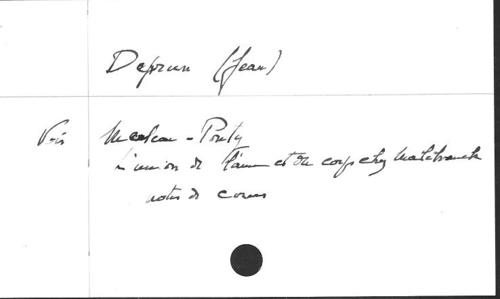 Deprun (Jean)
Voir Merleau-Ponty
L'union de l'âme et du corps chez Malebranche
notes de cours